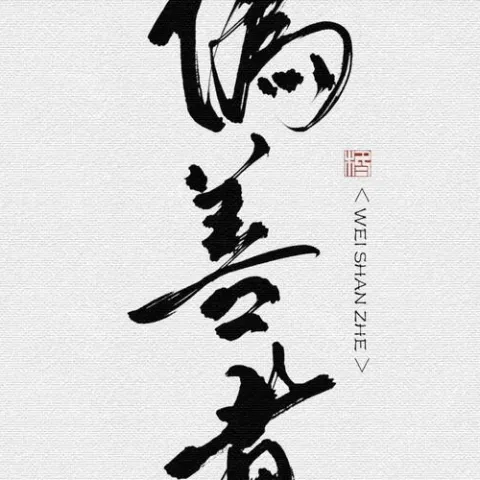 偽善者
< WEI SHAN ZHE >